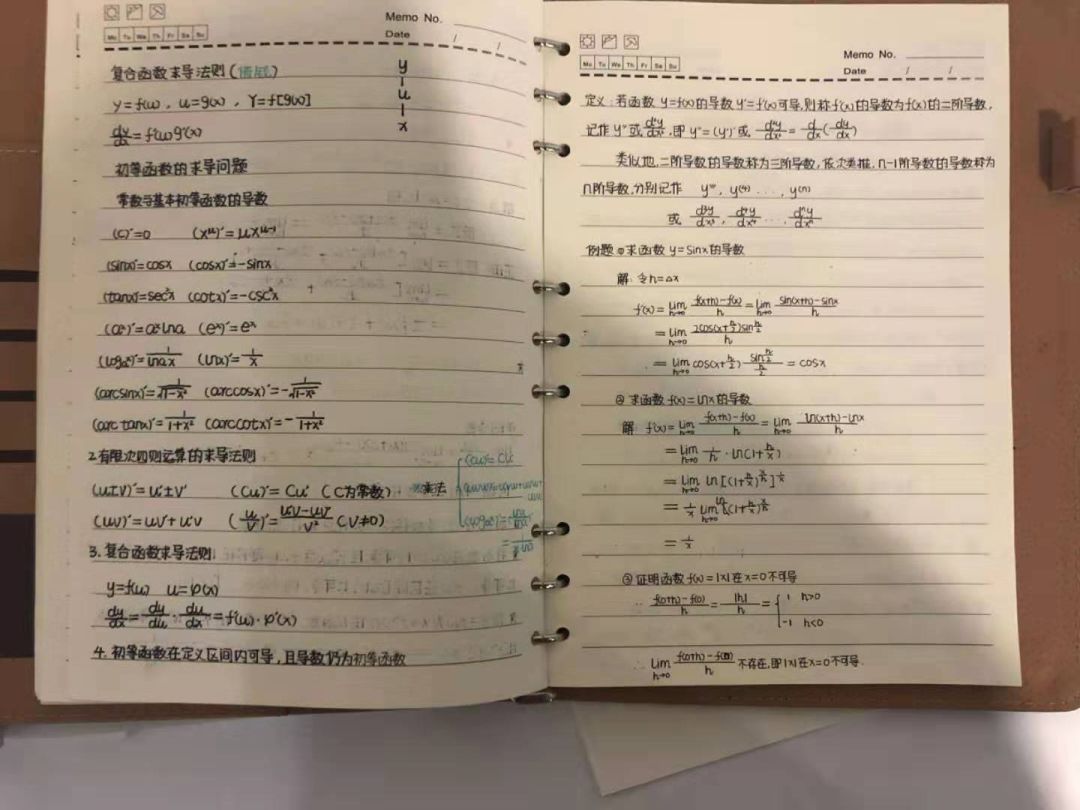 Memo No.
Mo Tu We Th Fr Sa Su
Date / /
复合函数求导法则()
y
u
x
y=f(u), u=g(x), Y=f[g(x)]
dy/dx=f'(u)g'(x)
初等函数的求导问题
常数与基本初等函数的导数
(C)'=0 (x^μ)'=μx^(μ-1)
(sinx)'=cosx (cosx)'=-sinx
(tanx)'=sec²x (cotx)'=-csc²x
(a^x)'=a^x lna (e^x)'=e^x
(log_a x)'=1/(lna x) (lnx)'=1/x
(arcsinx)'=1/√(1-x²) (arccosx)'=-1/√(1-x²)
(arctanx)'=1/(1+x²) (arccotx)'=-1/(1+x²)
2.有限次四则运算的求导法则
(u±v)'=u'±v' (Cu)'=Cu' (C为常数) 乘法
(uv)'=uv'+u'v (u/v)'=(u'v-uv')/v² (v≠0)
(Cu)'=Cu'
3.复合函数求导法则
y=f(u) u=φ(x)
dy/dx=dy/du·du/dx=f'(u)·φ'(x)
4.初等函数在定义区间内可导,且导数仍为初等函数
Memo No.
Mo Tu We Th Fr Sa Su
Date / /
定义:若函数y=f(x)的导数y'=f'(x)可导,则称f'(x)的导数为f(x)的二阶导数,
记作y''或d²y/dx²,即y''=(y')'或d²y/dx²=d/dx(dy/dx)
类似地,二阶导数的导数称为三阶导数,依次类推,n-1阶导数的导数称为
n阶导数,分别记作 y''', y^(4) ..., y^(n)
或 d³y/dx³, d⁴y/dx⁴ ..., dⁿy/dxⁿ
例题①求函数y=sinx的导数
解:令h=△x
f'(x)=lim h→0 (f(x+h)-f(x))/h=lim h→0 (sin(x+h)-sinx)/h
=lim h→0 2cos(x+h/2)sin h/2 / h
=lim h→0 cos(x+h/2)·(sin h/2)/(h/2)=cosx
②求函数f(x)=lnx的导数
解 f'(x)=lim h→0 (f(x+h)-f(x))/h=lim h→0 (ln(x+h)-lnx)/h
=lim h→0 1/h·ln(1+h/x)
=lim h→0 ln[(1+h/x)^(x/h)]^(1/x)
=1/x lim h→0 ln(1+h/x)^(x/h)
=1/x
③证明函数f(x)=|x|在x=0不可导
∵ (f(0+h)-f(0))/h=|h|/h={1 h>0
-1 h<0
∴ lim h→0 (f(0+h)-f(0))/h 不存在,即|x|在x=0不可导.